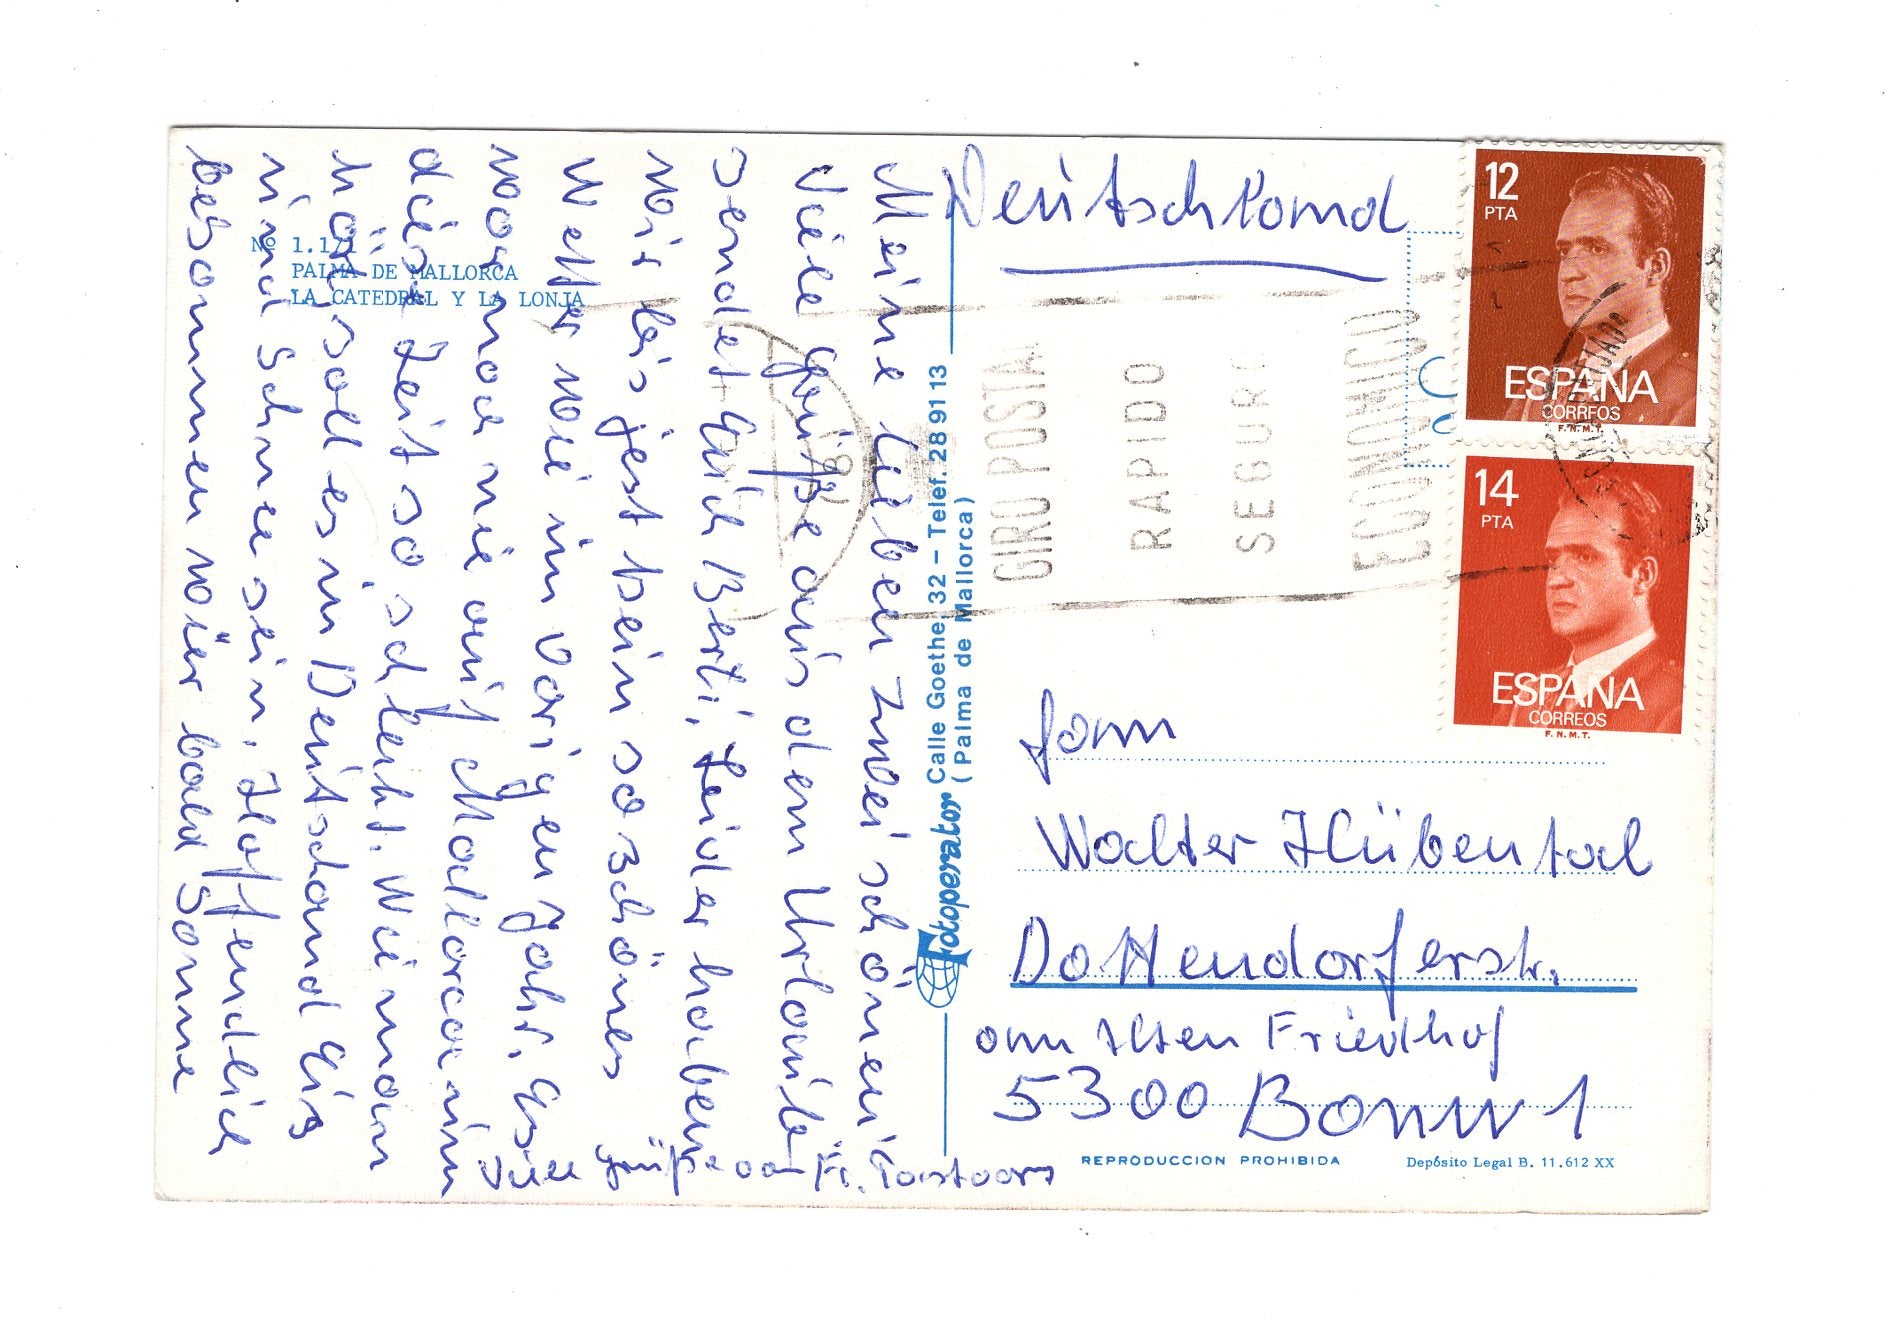 Nº 1.1/1
PALMA DE MALLORCA
LA CATEDRAL Y LA LONJA
Meine lieben Zwei schönen
Viele Grüße aus dem Urlaub
sendet Euch Berti. Leider haben
wir bis jest kein so schönes
Wetter wie im vorigen Jahr. Es
war noch nie auf Mallorca um
diese Zeit so schlecht. Wie man
hört soll es in Deutschland Eis
und Schnee sein. Hoffendlich
bekommen wier bald Sonne
Viele Grüße an Fr.
Fotoperator Calle Goethe, 32 - Telef. 28 91 13
(Palma de Mallorca)
Deutschland
GIRO POSTAL
RAPIDO
SEGURO
ECONOMICO
12
PTA
ESPAÑA
CORREOS
F.N.M.T.
14
PTA
ESPAÑA
CORREOS
F.N.M.T.
Fam
Walter Hübental
Dottendorferstr.
am Alten Friedhof
5300 Bonn 1
REPRODUCCION PROHIBIDA
Depósito Legal B. 11.612 XX